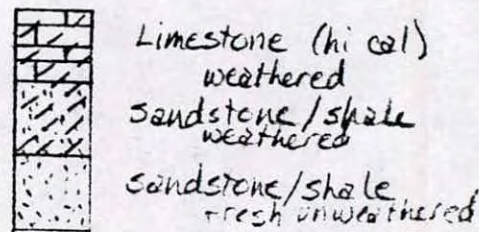 Limestone (hi cal)
weathered
Sandstone/shale
weathered
sandstone/shale
fresh unweathered